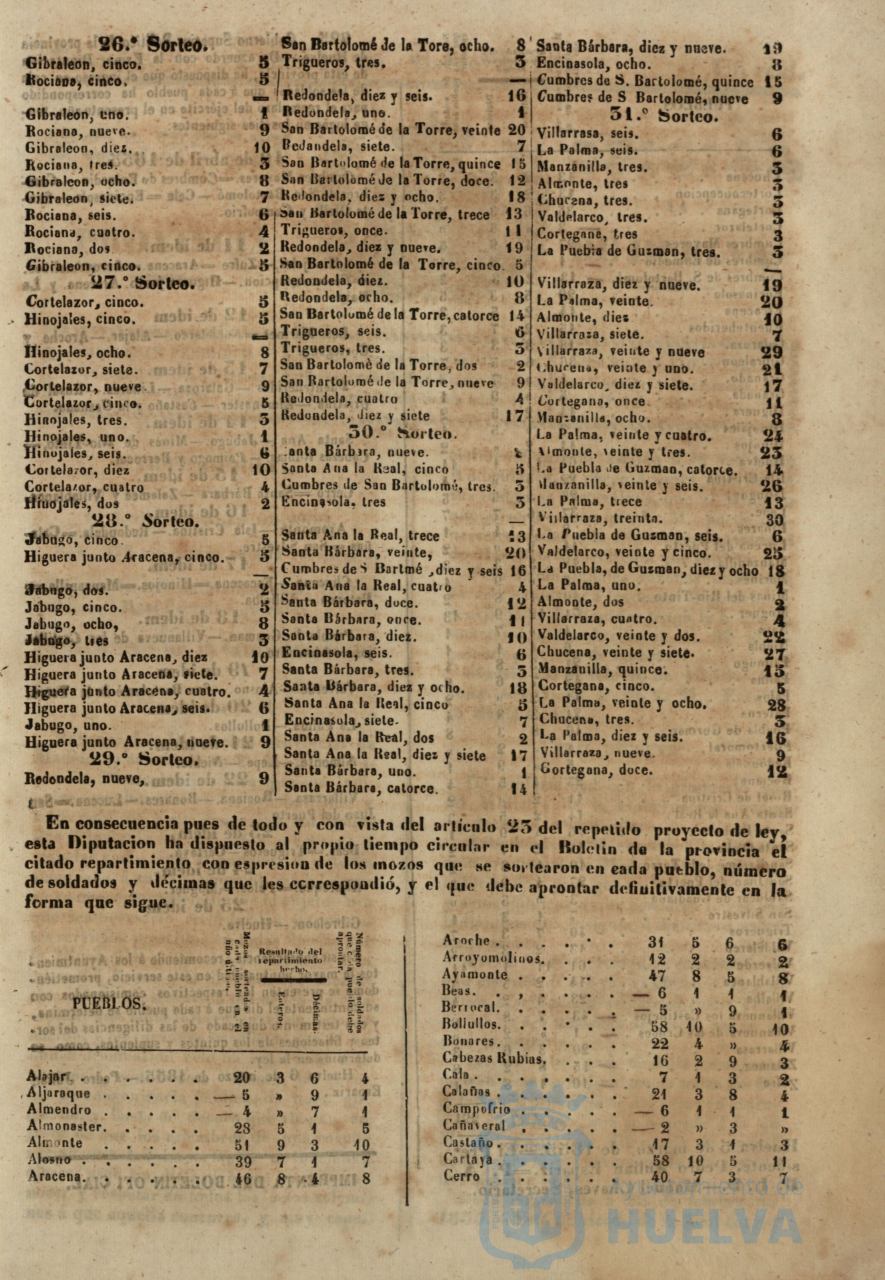 26.º Sorteo.
Gibraleon, cinco. 5
Rociana, cinco. 5
Gibraleon, uno. 1
Rociana, nueve. 9
Gibraleon, diez. 10
Rociana, tres. 3
Gibraleon, ocho. 8
Gibraleon, siete. 7
Rociana, seis. 6
Rociana, cuatro. 4
Rociana, dos 2
Gibraleon, cinco. 5
27.º Sorteo.
Cortelazor, cinco. 5
Hinojales, cinco. 5
Hinojales, ocho. 8
Cortelazor, siete. 7
Cortelazor, nueve 9
Cortelazor, cinco. 5
Hinojales, tres. 3
Hinojales, uno. 1
Hinojales, seis. 6
Cortelazor, diez 10
Cortelazor, cuatro 4
Hinojales, dos 2
28.º Sorteo.
Jabugo, cinco. 5
Higuera junto Aracena, cinco. 5
Jabugo, dos. 2
Jabugo, cinco. 5
Jabugo, ocho, 8
Jabugo, tres 3
Higuera junto Aracena, diez 10
Higuera junto Aracena, siete. 7
Higuera junto Aracena, cuatro. 4
Higuera junto Aracena, seis. 6
Jabugo, uno. 1
Higuera junto Aracena, nueve. 9
29.º Sorteo.
Redondela, nueve, 9
San Bartolomé de la Tore, ocho. 8
Trigueros, tres. 3
Redondela, diez y seis. 16
Redondela, uno. 1
San Bartolomé de la Torre, veinte 20
Redondela, siete. 7
San Bartolomé de la Torre, quince 15
San Bartolomé de la Torre, doce. 12
Redondela, diez y ocho. 18
San Bartolomé de la Torre, trece 13
Trigueros, once. 11
Redondela, diez y nueve. 19
San Bartolomé de la Torre, cinco 5
Redondela, diez. 10
Redondela, ocho. 8
San Bartolomé de la Torre, catorce 14
Trigueros, seis. 6
Trigueros, tres. 3
San Bartolomè de la Torre, dos 2
San Bartolomé de la Torre, nueve 9
Redondela, cuatro 4
Redondela, diez y siete 17
30.º Sorteo.
Santa Bárbara, nueve.
Santa Ana la Real, cinco 5
Cumbres de San Bartolomé, tres. 3
Encinasola, tres 3
Santa Ana la Real, trece 13
Santa Bárbara, veinte, 20
Cumbres de S Bartmé, diez y seis 16
Santa Ana la Real, cuatro 4
Santa Bárbara, doce. 12
Santa Bárbara, once. 11
Santa Bárbara, diez. 10
Encinasola, seis. 6
Santa Bárbara, tres. 3
Santa Bárbara, diez y ocho. 18
Santa Ana la Real, cinco 5
Encinasola, siete. 7
Santa Ana la Real, dos 2
Santa Ana la Real, diez y siete 17
Santa Bárbara, uno. 1
Santa Bárbara, catorce. 14
Santa Bárbara, diez y nueve. 19
Encinasola, ocho. 8
Cumbres de S. Bartolomé, quince 15
Cumbres de S Bartolomé, nueve 9
31.º Sorteo.
Villarrasa, seis. 6
La Palma, seis. 6
Manzanilla, tres. 3
Almonte, tres 3
Chucena, tres. 3
Valdelarco, tres. 3
Cortegana, tres 3
La Puebla de Guzman, tres. 3
Villarraza, diez y nueve. 19
La Palma, veinte. 20
Almonte, diez 10
Villarraza, siete. 7
Villarraza, veinte y nueve 29
Chucena, veinte y uno. 21
Valdelarco, diez y siete. 17
Cortegana, once 11
Manzanilla, ocho. 8
La Palma, veinte y cuatro. 24
Almonte, veinte y tres. 23
La Puebla de Guzman, catorce. 14
Manzanilla, veinte y seis. 26
La Palma, trece 13
Villarraza, treinta. 30
La Puebla de Guzman, seis. 6
Valdelarco, veinte y cinco. 25
La Puebla, de Guzman, diez y ocho 18
La Palma, uno. 1
Almonte, dos 2
Villarraza, cuatro. 4
Valdelarco, veinte y dos. 22
Chucena, veinte y siete. 27
Manzanilla, quince. 15
Cortegana, cinco. 5
La Palma, veinte y ocho. 28
Chucena, tres. 3
La Palma, diez y seis. 16
Villarraza, nueve. 9
Cortegana, doce. 12
En consecuencia pues de todo y con vista del artículo 23 del repetido proyecto de ley,
esta Diputacion ha dispuesto al propio tiempo circular en el Boletin de la provincia el
citado repartimiento con espresion de los mozos que se sortearon en cada pueblo, número
de soldados y décimas que les correspondió, y el que debe aprontar definitivamente en la
forma que sigue.
PUEBLOS.
Mozos sorteados en cada pueblo en
Resultado del
repartimiento
hecho.
Enteros.
Décimas.
Número de soldados
que cada pueblo debe
aprontar.
Alajar 20 3 6 4
Aljaraque — 5 » 9 1
Almendro — 4 » 7 1
Almonaster. 28 5 1 5
Almonte 51 9 3 10
Alosno 39 7 1 7
Aracena. 46 8 4 8
Aroche 31 5 6 6
Arroyomolinos. 12 2 2 2
Ayamonte 47 8 5 8
Beas. — 6 1 1 1
Berrocal. — 5 » 9 1
Bollullos. 58 10 5 10
Bonares. 22 4 » 4
Cabezas Rubias. 16 2 9 3
Cala 7 1 3 2
Calañas 21 3 8 4
Campofrio — 6 1 1 1
Cañaveral — 2 » 3 »
Castaño. 17 3 1 3
Cartaya 58 10 5 11
Cerro 40 7 3 7
HUELVA